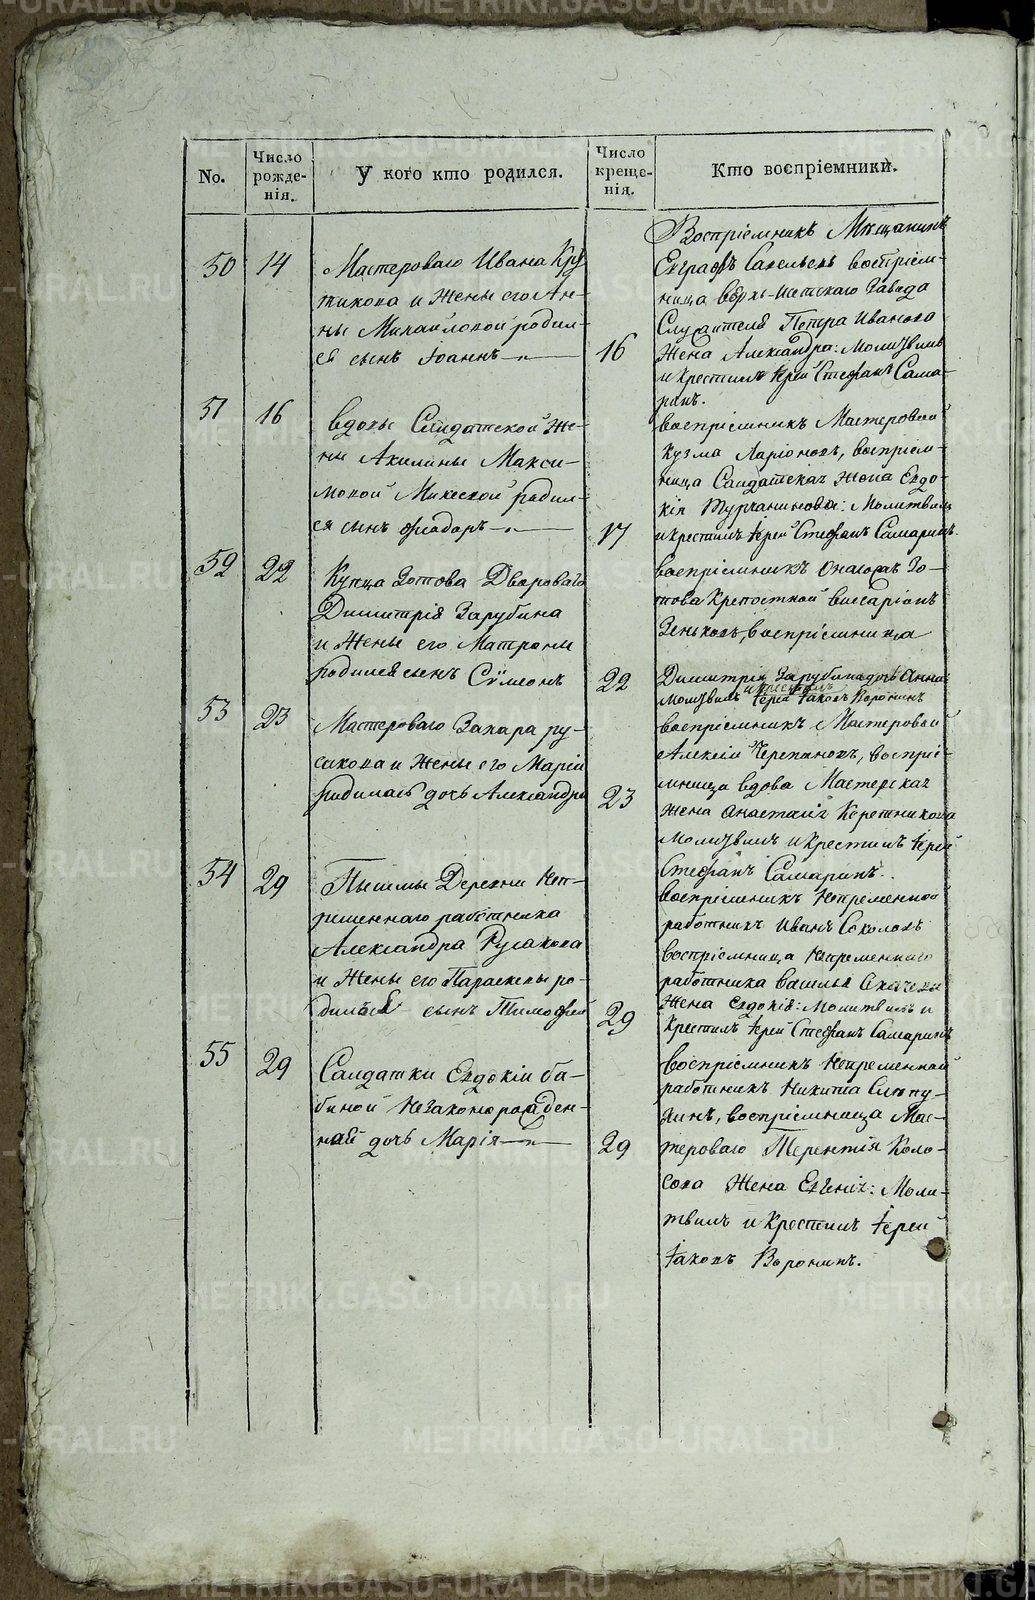 No.
Число рожденія.
У кого кто родился.
Число крещенія.
Кто воспріемники.
50 14
Мастероваго Ивана Кру
тикова и жены его Ан-
ны Михайловой родил-
ся сынъ Іоаннъ
16
Воспріемникъ Мещанинъ
Евграфъ Савельевъ воспріем-
ница Верхъ-Исетскаго Завода
Служителя Петра Иванова
жена Александра: Молитвилъ
и крестилъ Іерей Стефанъ Сама-
ринъ.
51 16
вдовы Солдатской же-
ны Акилины Макси-
мовой родил-
ся сынъ Ѳиодоръ
17
воспріемникъ Мастеровой
Кузма Ларіоновъ, воспріем-
ница Салдатская жена Евдо-
кія Турчанинова: Молитвилъ
и крестилъ Іерей Стефанъ Самаринъ.
52 22
Купца Зотова Двороваго
Димитрія Зарубина
и жены его Матроны
родился сынъ Сѵмеонъ
22
воспріемникъ Онагожъ Зо-
това Крепостной Виссаріонъ
Зеньковъ, воспріемница
Димитрія Зарубина дочь Анна
молитвилъ и крестилъ Іерей Іаковъ Воронинъ
53 23
Мастероваго Захара Ру-
сакова и жены его Маріи
родилась дочь Александра
23
воспріемникъ Мастеровой
Алексій Черепановъ, воспріе-
мница вдова Мастерская
жена Анастасія Керетникова
Молитвилъ и крестилъ Іерей
Стефанъ Самаринъ.
54 29
Пышмы Деревни Неп-
ременнаго работника
Александра Русакова
и жены его Параскевы ро-
дился сынъ Тимофей
29
воспріемникъ Непременной
работникъ Иванъ Соколовъ
воспріемница Непременнаго
работника Василья
жена Евдокія: Молитвилъ и
крестилъ Іерей Стефанъ Самаринъ
55 29
Салдатки Евдокіи Ба-
биной незаконорожден-
ная дочь Марія
29
воспріемникъ Непременной
работникъ Никита Слопу-
хинъ, воспріемница Мас-
тероваго Терентія Коло-
сова жена Евгенія: Моли-
твилъ и крестилъ Іерей
Іаковъ Воронинъ.
METRIKI.GASO-URAL.RU